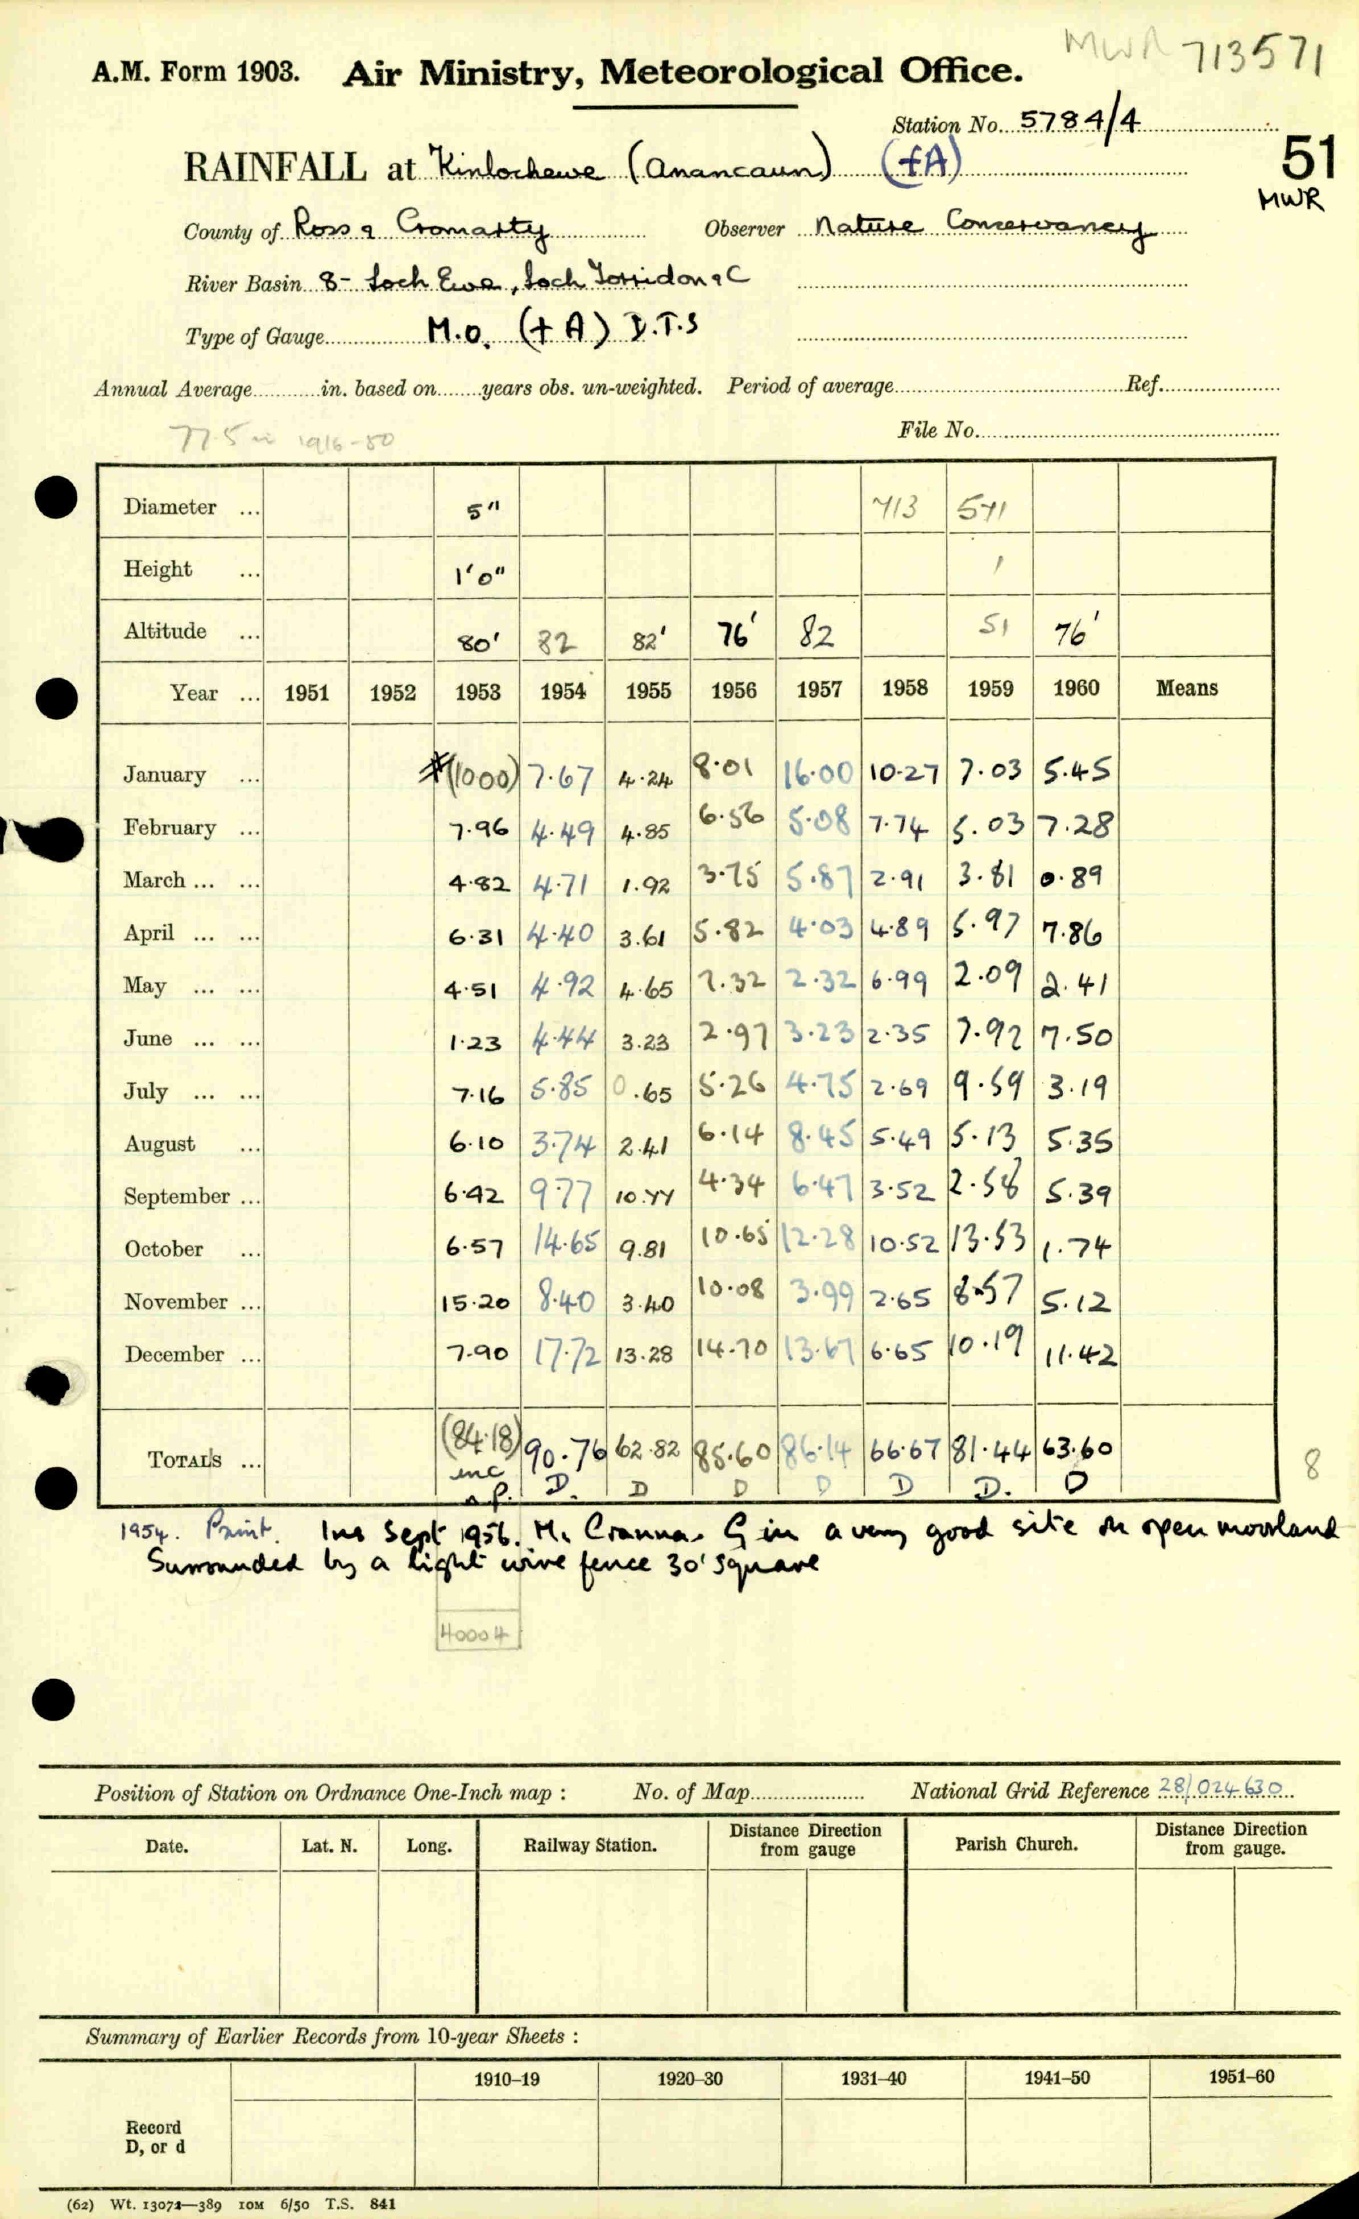 MWR 713571
A.M. Form 1903. Air Ministry, Meteorological Office.
Station No. 5784/4
RAINFALL at Kinlochewe (Anancaun) (+A) 51
MWR
County of Ross & Cromarty Observer Nature Conservancy
River Basin 8- Loch Ewe, Loch Torridon & C
Type of Gauge M.O. (+A) D.T.S
Annual Average in. based on years obs. un-weighted. Period of average Ref.
77.5 in 1916-50 File No.
Diameter ... 5" 713 571
Height ... 1'0" 1
Altitude ... 80' 82 82' 76' 82 51 76'
Year ... 1951 1952 1953 1954 1955 1956 1957 1958 1959 1960 Means
January ... #(1000) 7.67 4.24 8.01 16.00 10.27 7.03 5.45
February ... 7.96 4.49 4.85 6.56 5.08 7.74 5.03 7.28
March ... ... 4.82 4.71 1.92 3.75 5.87 2.91 3.81 0.89
April ... ... 6.31 4.40 3.61 5.82 4.03 4.89 5.97 7.86
May ... ... 4.51 4.92 4.65 7.32 2.32 6.99 2.09 2.41
June ... ... 1.23 4.44 3.23 2.97 3.23 2.35 7.92 7.50
July ... ... 7.16 5.85 0.65 5.26 4.75 2.69 9.59 3.19
August ... 6.10 3.74 2.41 6.14 8.45 5.49 5.13 5.35
September ... 6.42 9.77 10.77 4.34 6.47 3.52 2.58 5.39
October ... 6.57 14.65 9.81 10.65 12.28 10.52 13.53 1.74
November ... 15.20 8.40 3.40 10.08 3.99 2.65 8.57 5.12
December ... 7.90 17.72 13.28 14.70 13.67 6.65 10.19 11.42
TOTALS ... (84.18) 90.76 62.82 85.60 86.14 66.67 81.44 63.60 8
inc D. D D D D D. D
n.p.
1954. Print. Ins Sept 1956. Mr Cranna. G in a very good site on open moorland
Surrounded by a light wire fence 30' square
40004
Position of Station on Ordnance One-Inch map : No. of Map National Grid Reference 28/024630
Date. Lat. N. Long. Railway Station. Distance from Direction gauge Parish Church. Distance from Direction gauge.
Summary of Earlier Records from 10-year Sheets :
1910–19 1920–30 1931–40 1941–50 1951–60
Record
D, or d
(62) Wt. 13072—389 10M 6/50 T.S. 841